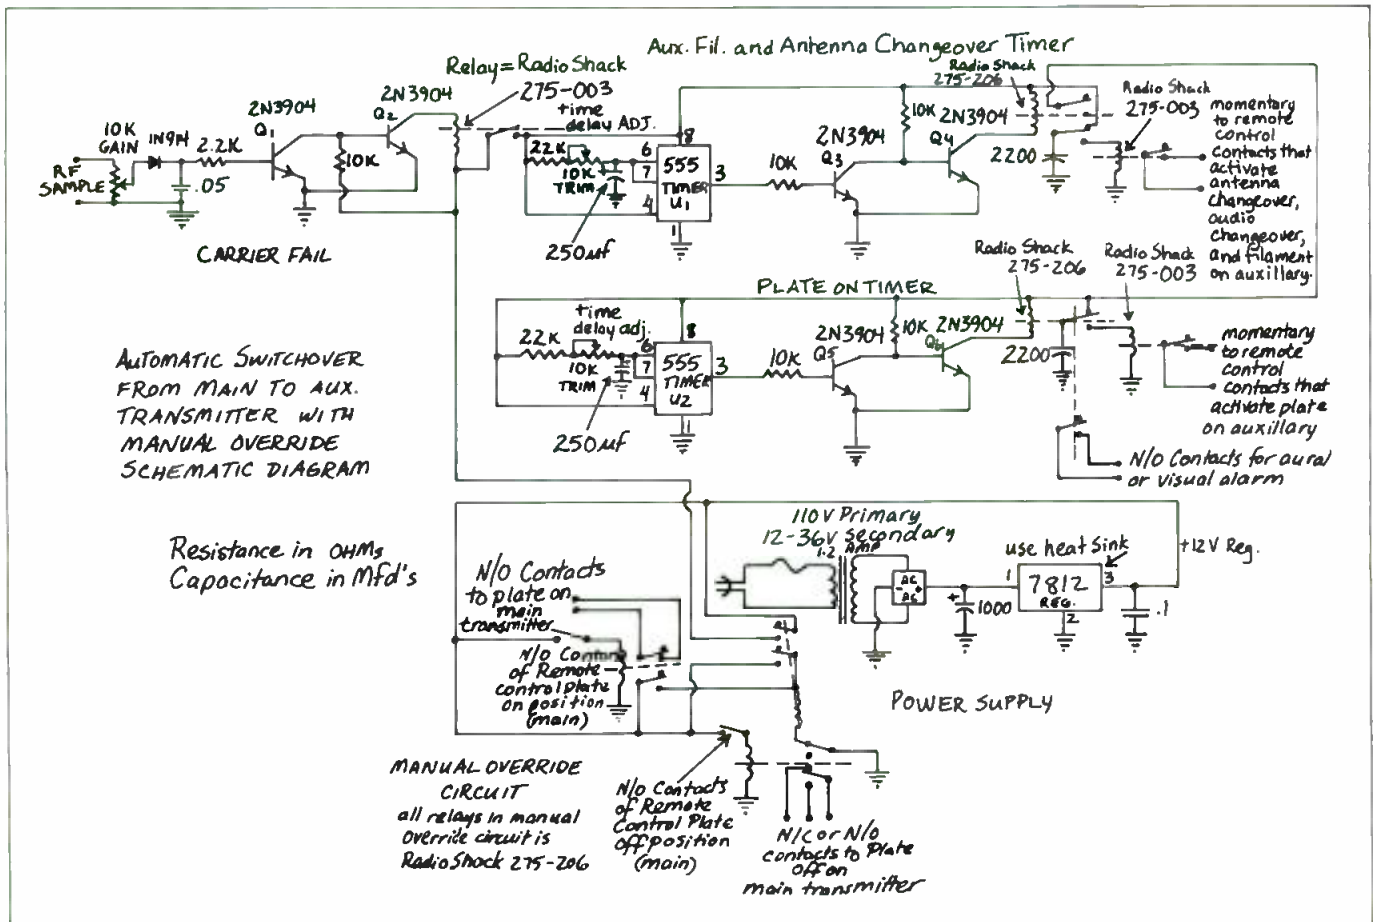 Aux. Fil. and Antenna Changeover Timer
Relay=Radio Shack
275-003
time
delay ADJ.
2N3904
Q1
2N3904
Q2
10K
GAIN
1N914
2.2K
RF
SAMPLE
.05
10K
CARRIER FAIL
22K
10K
TRIM
250uf
6
7
4
8
555
TIMER
U1
3
1
10K
2N3904
Q3
10K
2N3904
Q4
Radio Shack
275-206
2200
Radio Shack
275-003
momentary
to remote
control
contacts that
activate
antenna
changeover,
audio
changeover,
and filament
on auxillary.
PLATE ON TIMER
22K
time
delay adj.
10K
TRIM
250uf
6
7
4
8
555
TIMER
U2
3
1
10K
2N3904
Q5
10K
2N3904
Q6
Radio Shack
275-206
2200
Radio Shack
275-003
momentary
to remote
control
contacts that
activate plate
on auxillary
N/O Contacts for aural
or visual alarm
AUTOMATIC SWITCHOVER
FROM MAIN TO AUX.
TRANSMITTER WITH
MANUAL OVERRIDE
SCHEMATIC DIAGRAM
Resistance in OHMs
Capacitance in Mfd's
110V Primary
12-36V secondary
1.2 AMP
AC
- +
AC
+
1000
use heat Sink
1
7812
REG.
3
2
.1
+12V Reg.
POWER SUPPLY
N/O Contacts
to plate on
main
transmitter
N/O Contacts
of Remote
control plate
on position
(main)
MANUAL OVERRIDE
CIRCUIT
all relays in manual
override circuit is
Radio Shack 275-206
N/O Contacts
of Remote
Control Plate
off position
(main)
N/C or N/O
contacts to Plate
off on
main transmitter